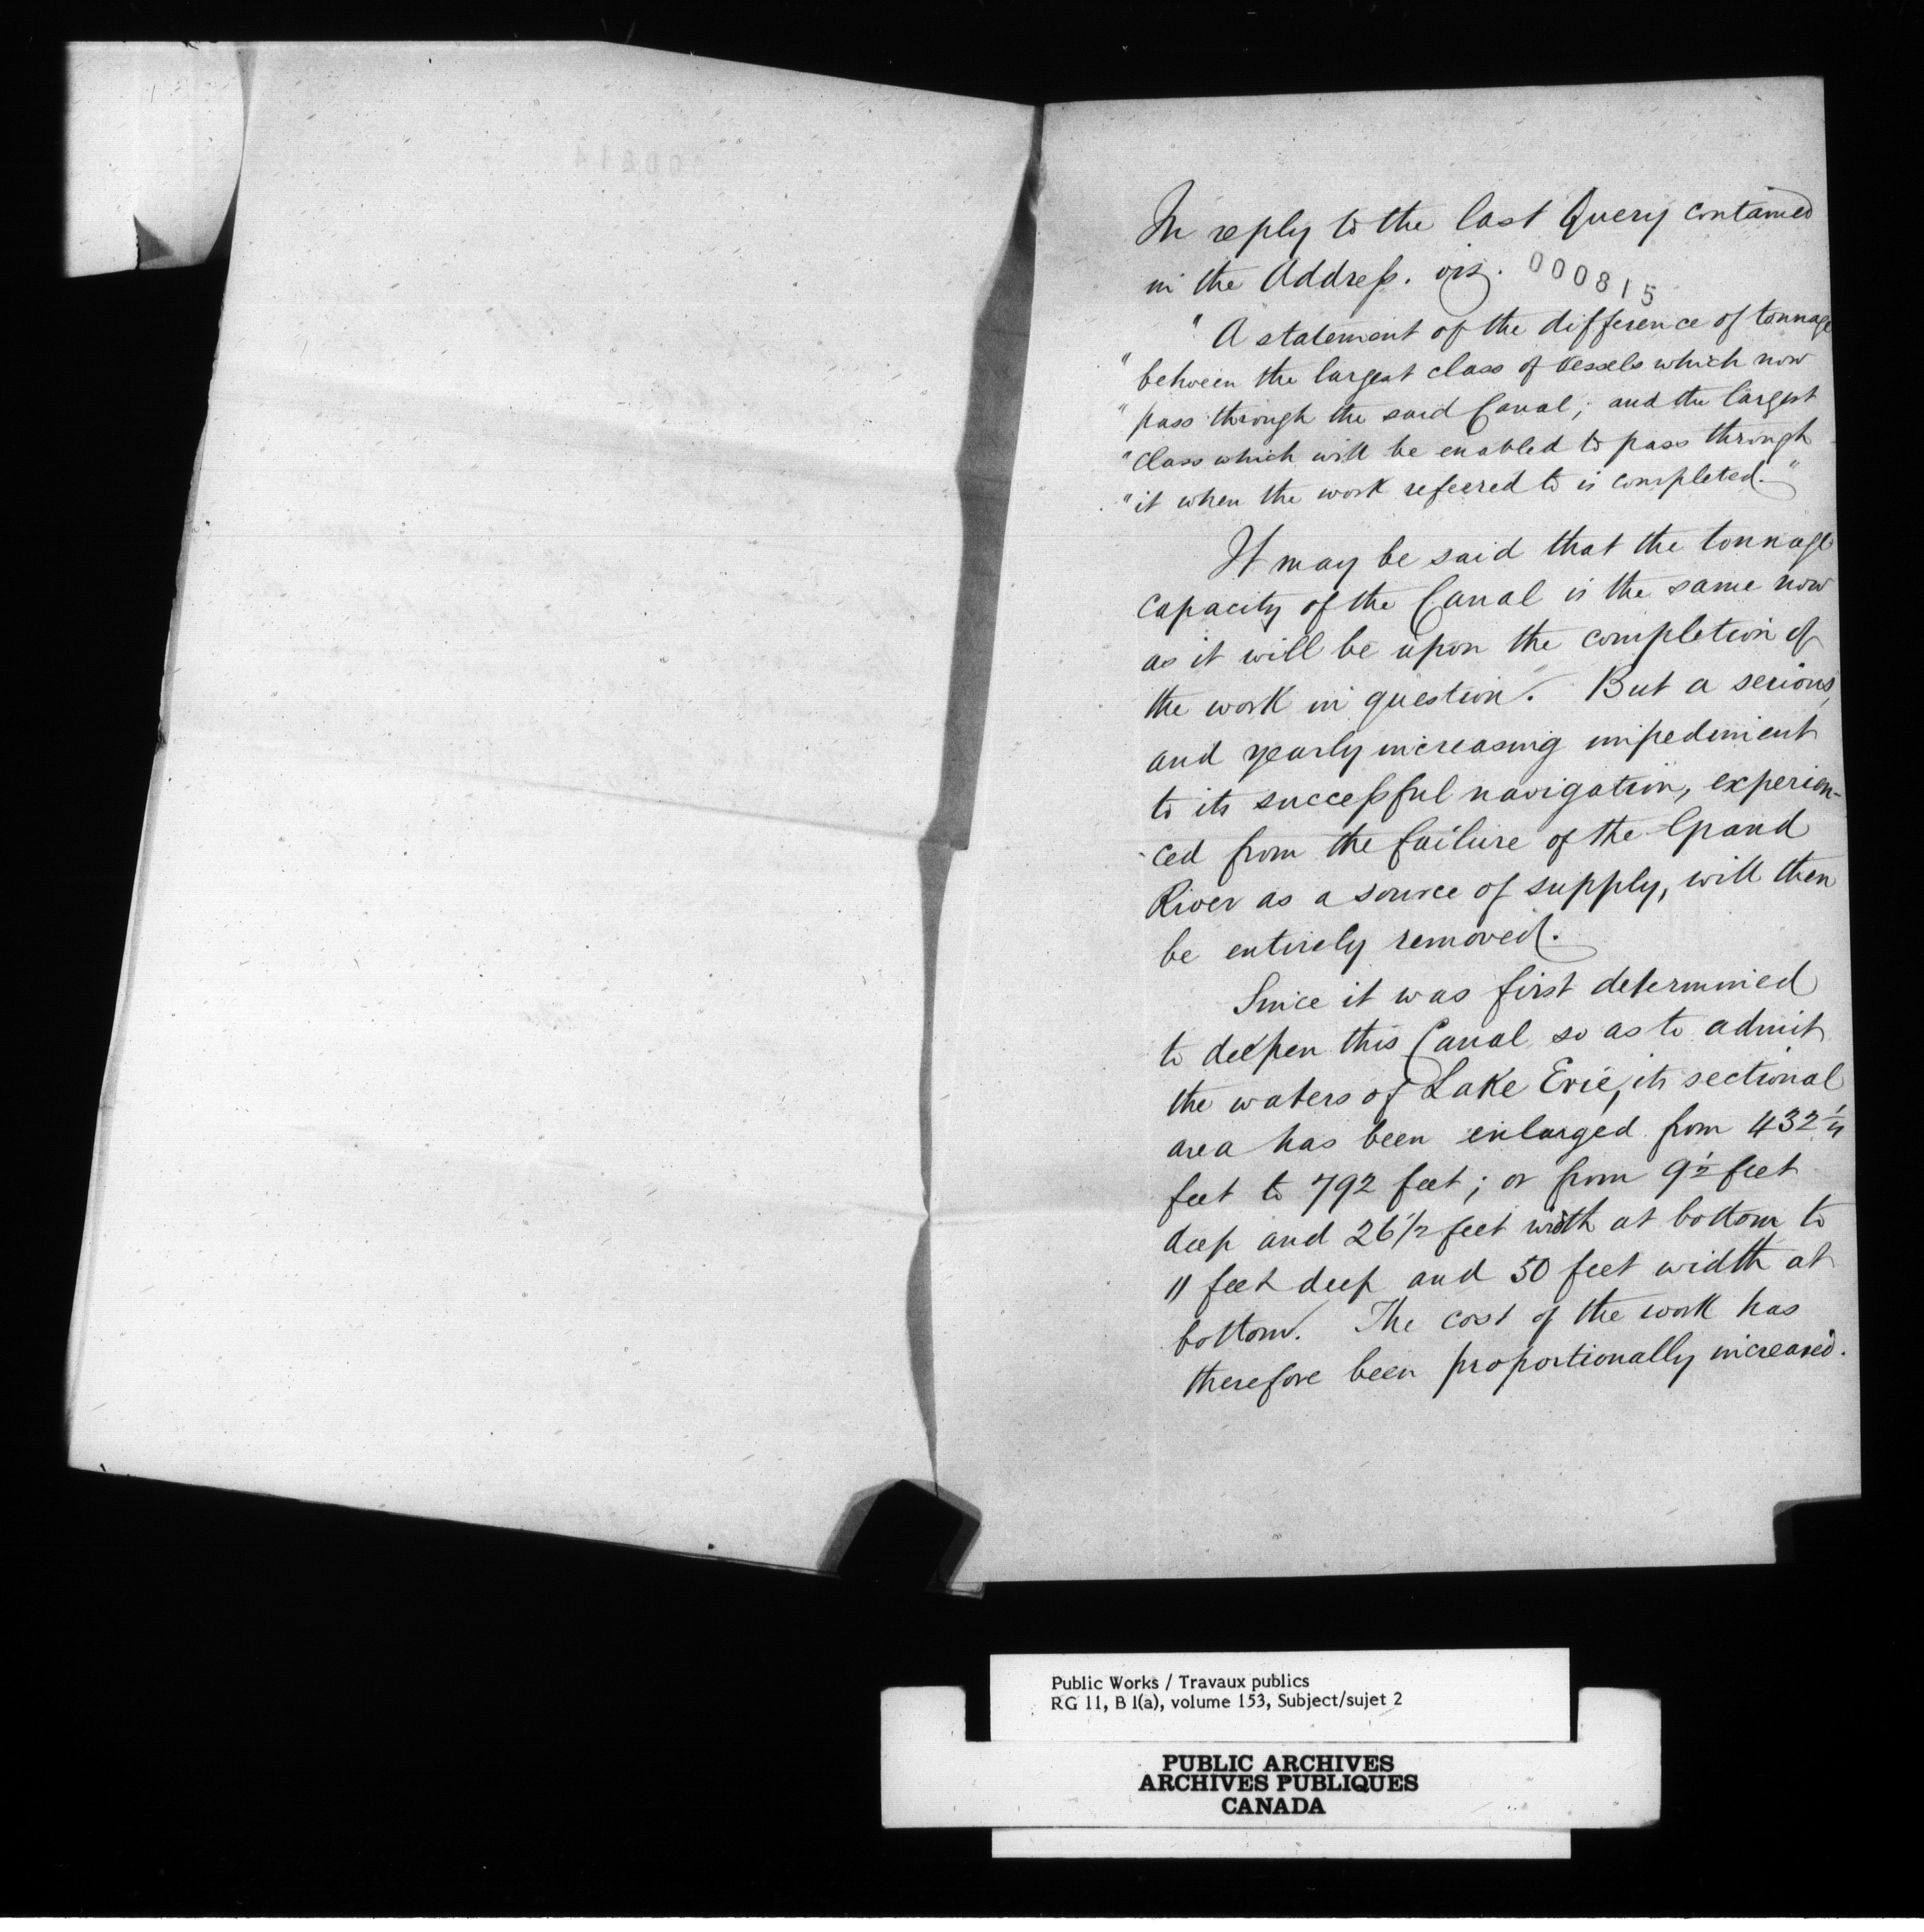 In reply to the last Query contained
in the Address. viz.
000815
" A statement of the difference of tonnage
" between the largest class of vessels which now
" pass through the said Canal; and the largest
" class which will be enabled to pass through
" it when the work referred to is completed."
It may be said that the tonnage
capacity of the Canal is the same now
as it will be upon the completion of
the work in question. But a serious
and yearly increasing impediment
to its successful navigation, experien-
-ced from the failure of the Grand
River as a source of supply, will then
be entirely removed.
Since it was first determined
to deepen this Canal so as to admit
the waters of Lake Erie, its sectional
area has been enlarged from 432 1/4
feet to 792 feet; or from 9 1/2 feet
deep and 26 1/2 feet width at bottom to
11 feet deep and 50 feet width at
bottom. The cost of the work has
therefore been proportionally increased.
Public Works / Travaux publics
RG 11, B 1(a), volume 153, Subject/sujet 2
PUBLIC ARCHIVES
ARCHIVES PUBLIQUES
CANADA